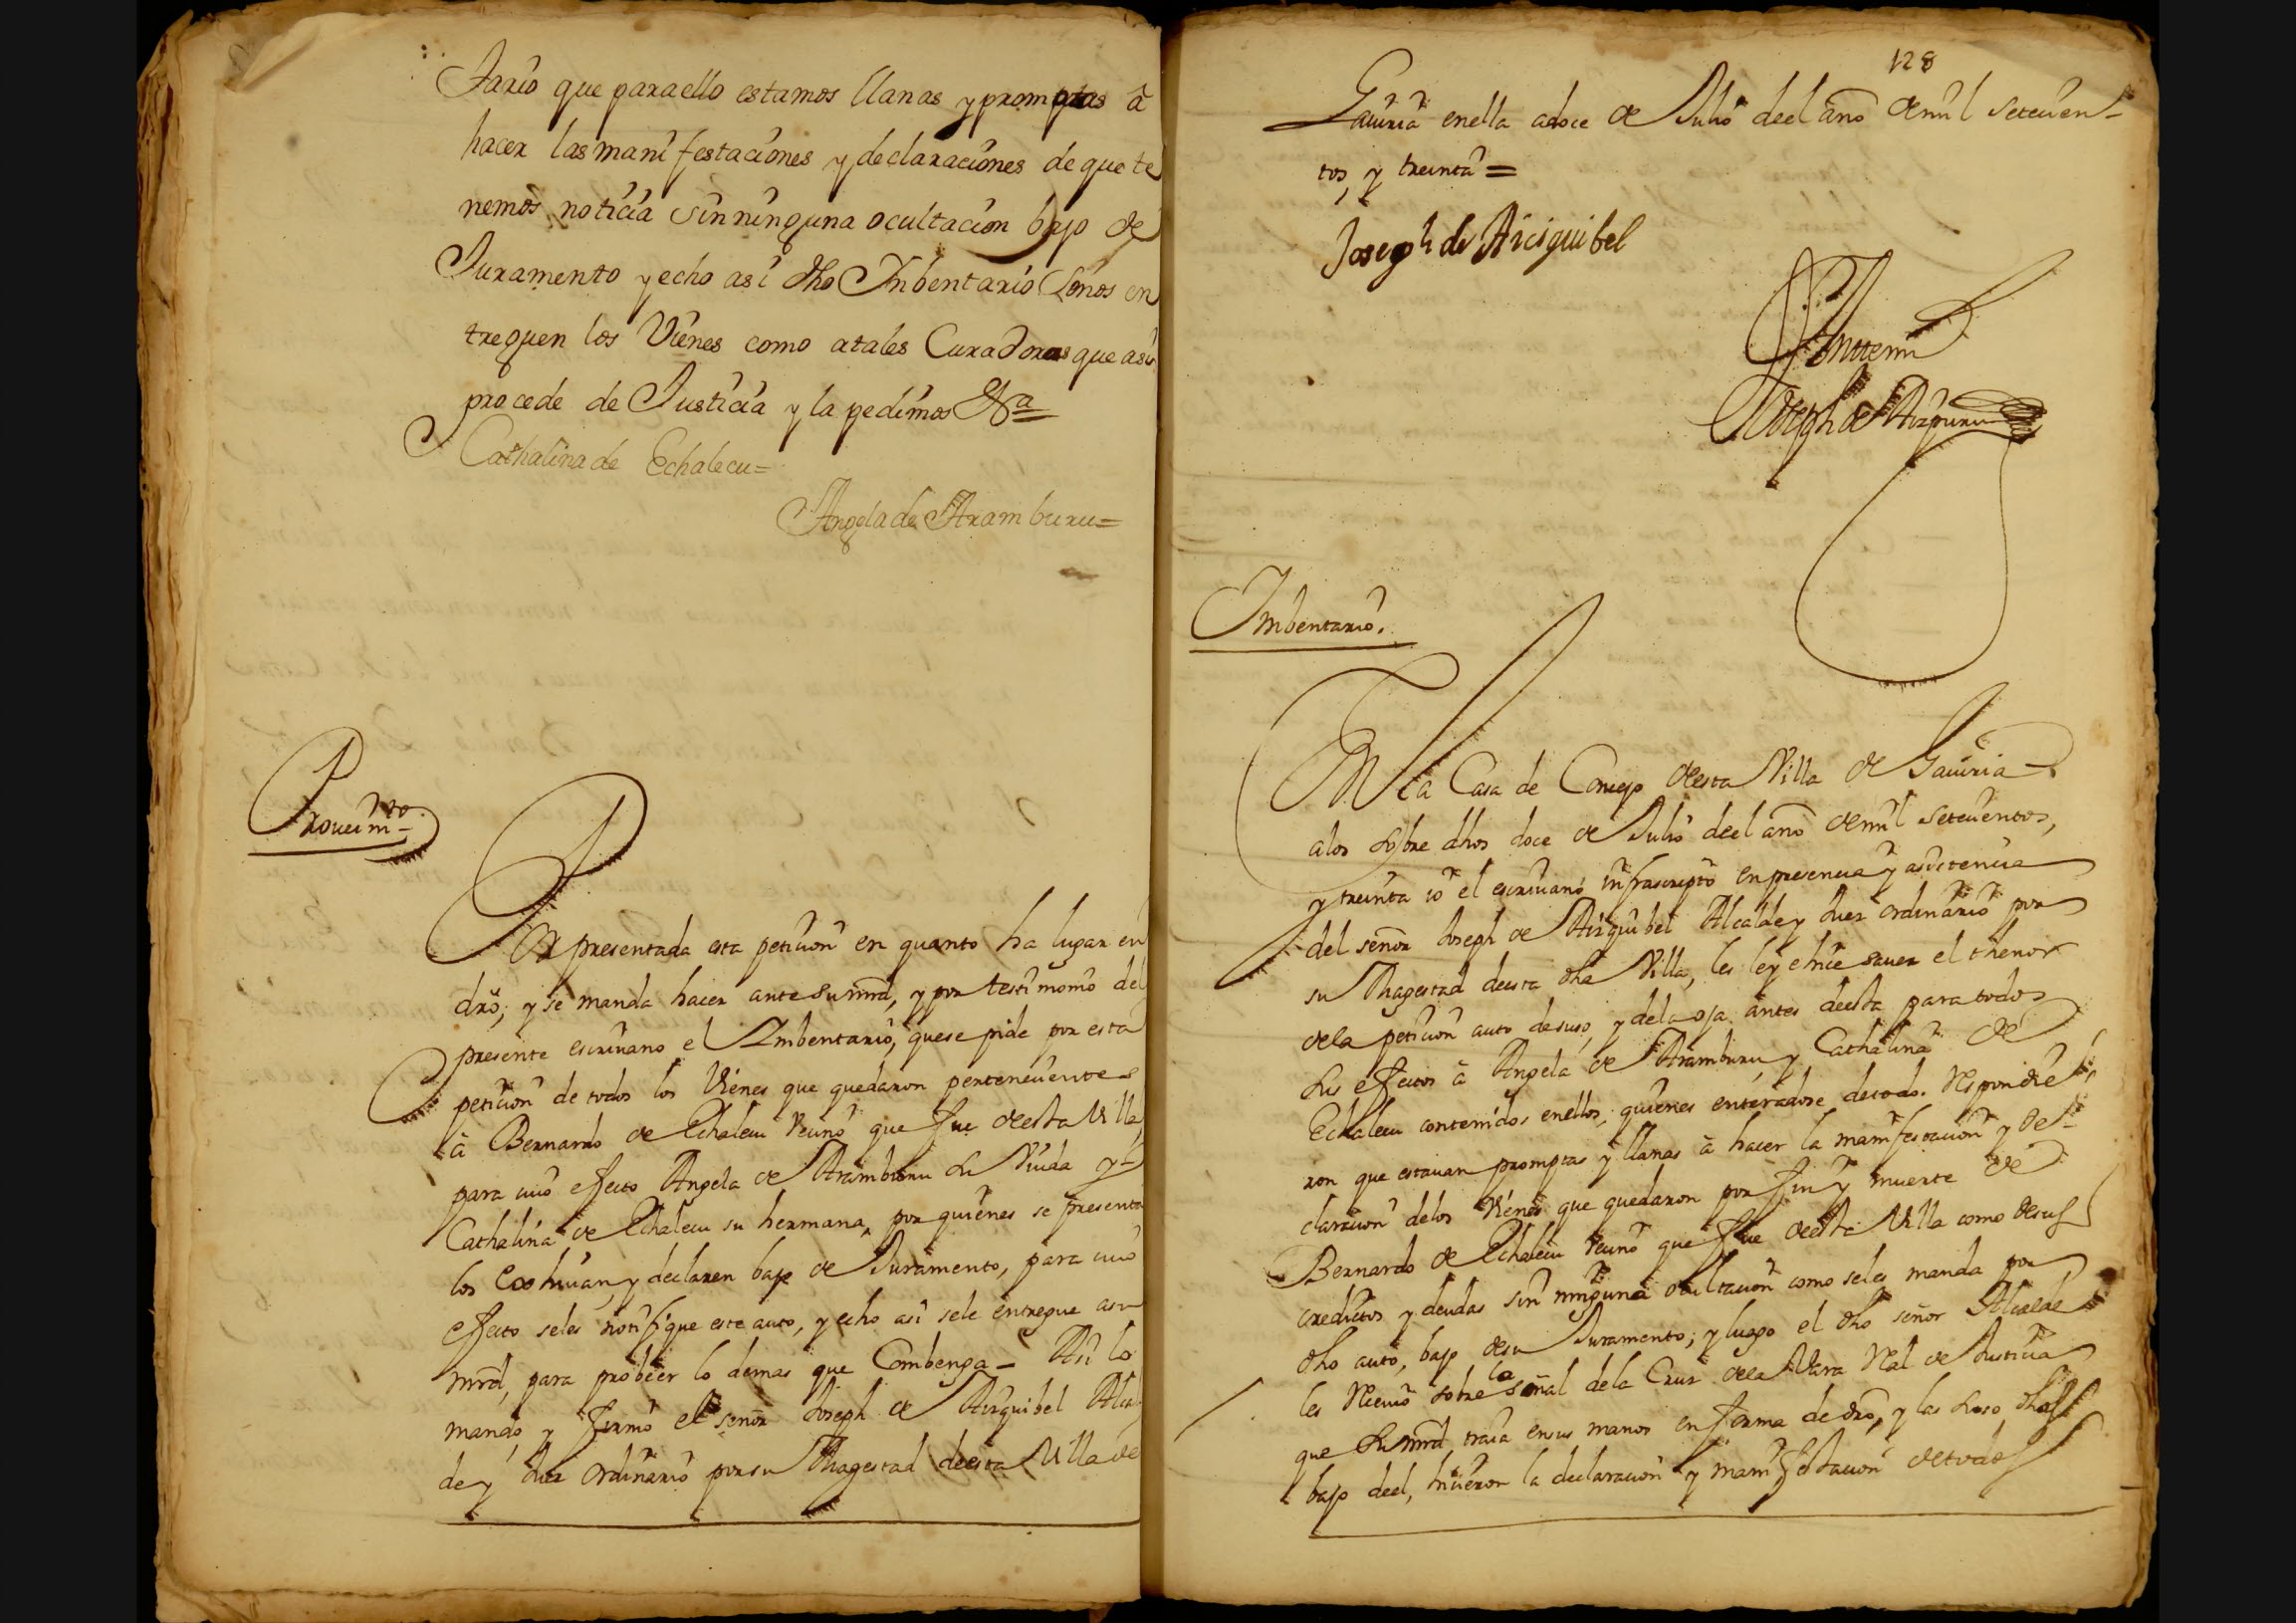 tario que para ello estamos llanas y promptas â
hacer las manifestaciones y declaraciones de que te
nemos noticia sin ninguna ocultacion bajo de
Juramento y echo asi dho Inbentario senos en
treguen los Vienes como atales Curadoras que asi
procede de Justicia y la pedimos &ra
Cathalina de Echalecu=
Angela de Aramburu=
Proueimto
Por presentada esta peticion en quanto ha lugar en
dro; y se manda hacer ante su mrd, y por testimonio del
presente escriuano el Imbentario, quese pide por esta
peticion de todos los Vienes que quedaron pertenecientes
â Bernardo de Echalecu vecino que fue deesta Villa
para cuio efecto Angela de Aramburu su Viuda y
Cathalina de Echalecu su hermana, por quienes se presento
los exshiuan, y declaren bajo de Juramento, para cuio
efecto seles notifique este auto, y echo asi sele entregue asu
mrd, para probeer lo demas que Combenga _ Asi lo
mando, y firmo el señor Joseph de Aizquibel Alcal
de y Juez ordinario por su Magestad deesta Villa de
128
Gauiria enella adoce de Julio deel año de mil setecien-
tos, y treinta =
Joseph de Aiciquibel
Antemi
Joseph de Aizpuru
Imbentario.
En la Casa de Concejo deesta Villa de Gauiria
alos sobre dhos doce de Julio deel año de mil setecientos,
y treinta io el escriuano infrascripto en presencia y asistencia
del señor Joseph de Aizquibel Alcalde y Juez ordinario por
su Magestad deesta dha Villa, les ley e hice sauer el thenor
dela peticion auto desuso, y dela oja antes deesta para todos
sus efectos â Angela de Aramburu, y Cathalina de
Echalecu contenidos enellos, quienes enteradose detodo. Respondie
ron que estauan promptas y llanas â hacer la manifestacion y de-
claracion delos Vienes que quedaron por fin y muerte de
Bernardo de Echalecu vecino que fue deesta Villa como desus
credictos y deudas sin ninguna ocultacion como seles manda por
dho auto, bajo desu Juramento; y luego el dho señor Alcalde
les Reciuio sobre la señal dela Cruz dela Vara Real de Justicia
que su mrd traia ensus manos en forma de dro, y las suso dhas
bajo deel, hicieron la declaracion y manifestacion detodos